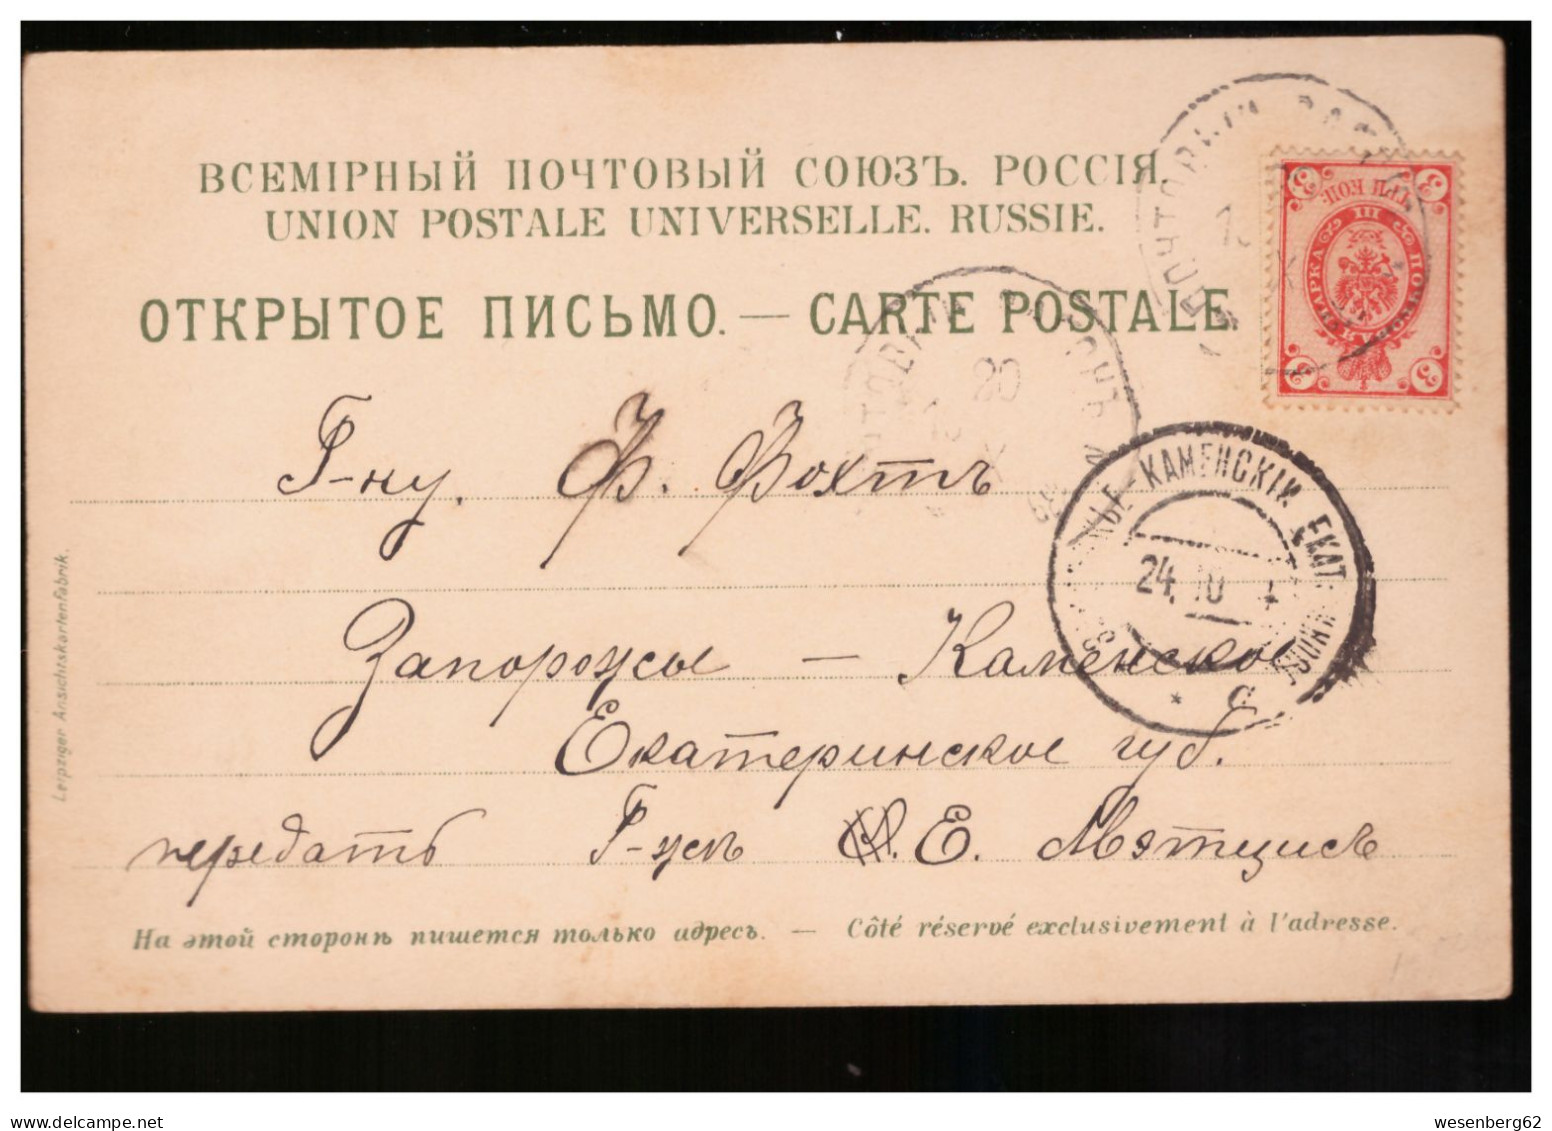 ВСЕМІРНЫЙ ПОЧТОВЫЙ СОЮЗЪ. РОССІЯ.
UNION POSTALE UNIVERSELLE. RUSSIE.
ОТКРЫТОЕ ПИСЬМО. — CARTE POSTALE
Г-ну. Ф. Фохтъ
Запорожье – Каменское
Екатеринское губ.
передать Г-жѣ Е. Мэтцисъ
На этой сторонѣ пишется только адресъ. — Côté réservé exclusivement à l'adresse.
Leipziger Ansichtskartenfabrik.
3 ТРИ КОП. 3
МАРКА
3 3
20
КАМЕНСКІЙ ЕКАТ
24. 10 4
wesenberg62